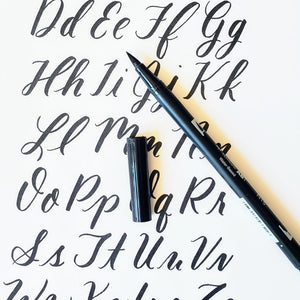 Dd Ee Ff Gg
Hh Ii Jj Kk
Ll Mm Nn
Oo Pp Qq Rr
Ss Tt Uu Vv